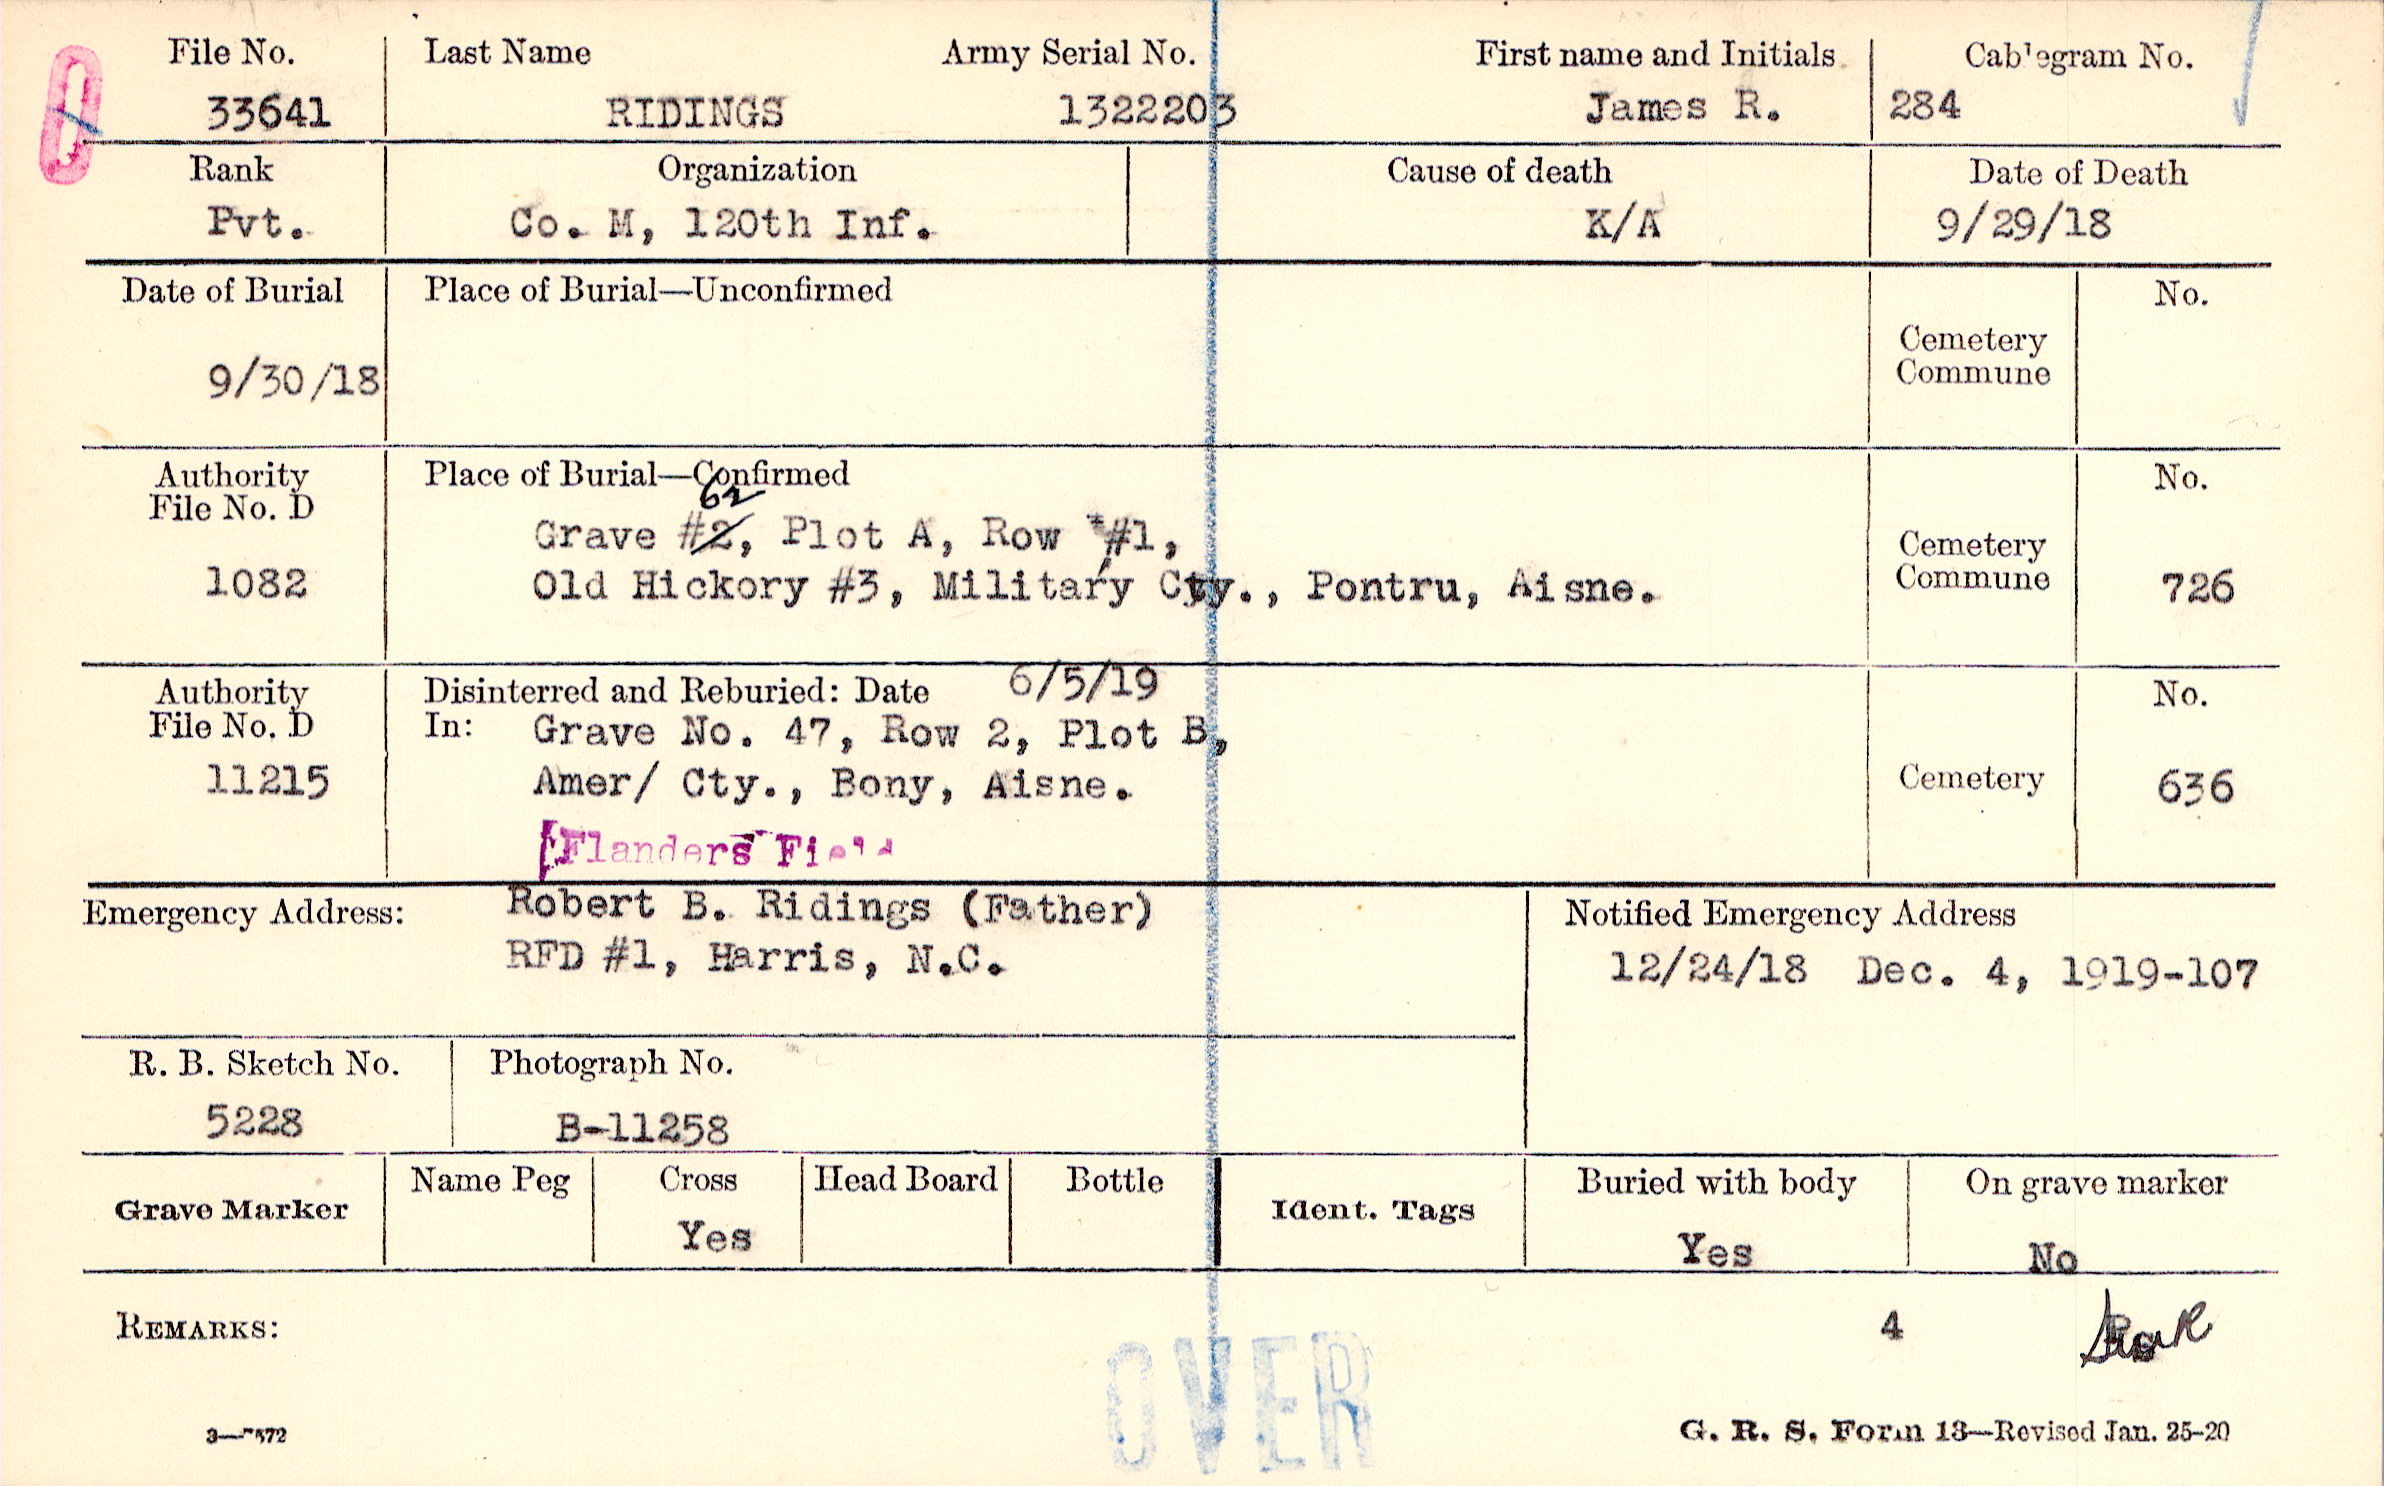 File No. Last Name Army Serial No. First name and Initials Cablegram No.
33641 RIDINGS 1322203 James R. 284
Rank Organization Cause of death Date of Death
Pvt. Co. M, 120th Inf. K/A 9/29/18
Date of Burial Place of Burial—Unconfirmed No.
Cemetery
Commune
9/30/18
Authority Place of Burial—Confirmed No.
File No. D
62
Grave #2, Plot A, Row #1,
Cemetery
Commune
1082 Old Hickory #3, Military Cty., Pontru, Aisne. 726
Authority Disinterred and Reburied: Date 6/5/19 No.
File No. D In: Grave No. 47, Row 2, Plot B,
11215 Amer/ Cty., Bony, Aisne. Cemetery 636
[Flanders Field
Emergency Address: Robert B. Ridings (Father) Notified Emergency Address
RFD #1, Harris, N.C. 12/24/18 Dec. 4, 1919-107
R. B. Sketch No. Photograph No.
5228 B-11258
Grave Marker Name Peg Cross Head Board Bottle Ident. Tags Buried with body On grave marker
Yes Yes No
REMARKS: 4
OVER
G. R. S. Form 13—Revised Jan. 25-20